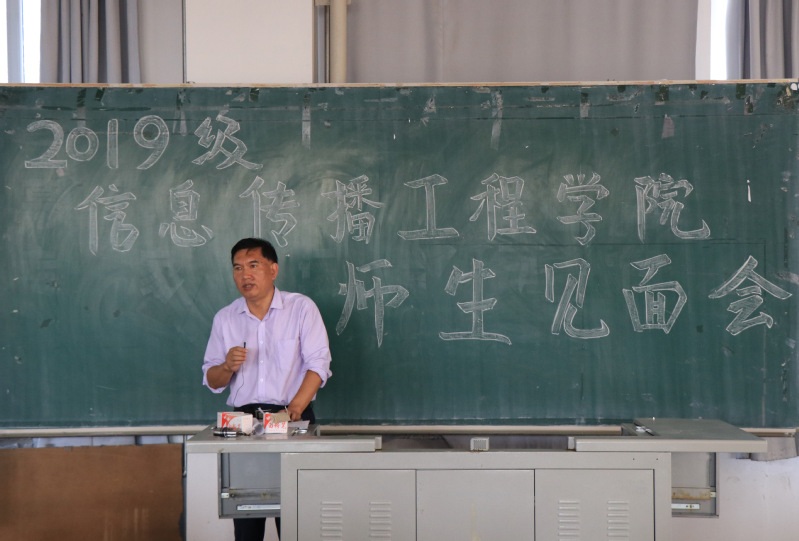 2019级
信息传播工程学院
师生见面会